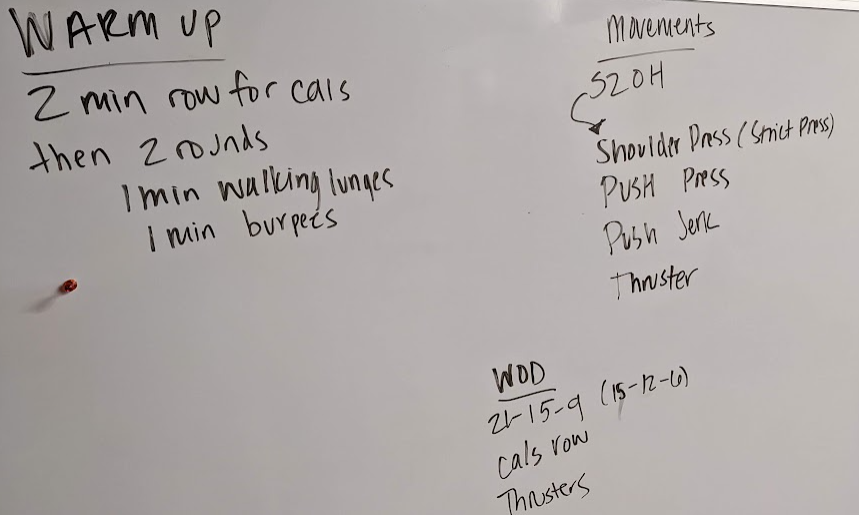 WARM UP
2 min row for cals
then 2 rounds
1 min walking lunges
1 min burpees
Movements
S2OH
Shoulder Press (Strict Press)
PUSH Press
Push Jerk
Thruster
WOD
21-15-9 (15-12-6)
cals row
Thrusters